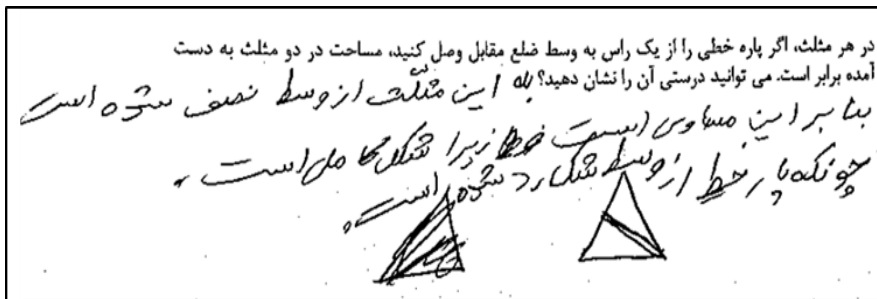 در هر مثلث، اگر پاره خطی را از یک راس به وسط ضلع مقابل وصل کنید، مساحت در دو مثلث به دست
آمده برابر است. می توانید درستی آن را نشان دهید؟ بله این مثلّث از وسط نصف شده است
بنا بر این مساوی است زیرا شکل کامل است.
چونکه پاره خط از وسط شکل رد شده است.